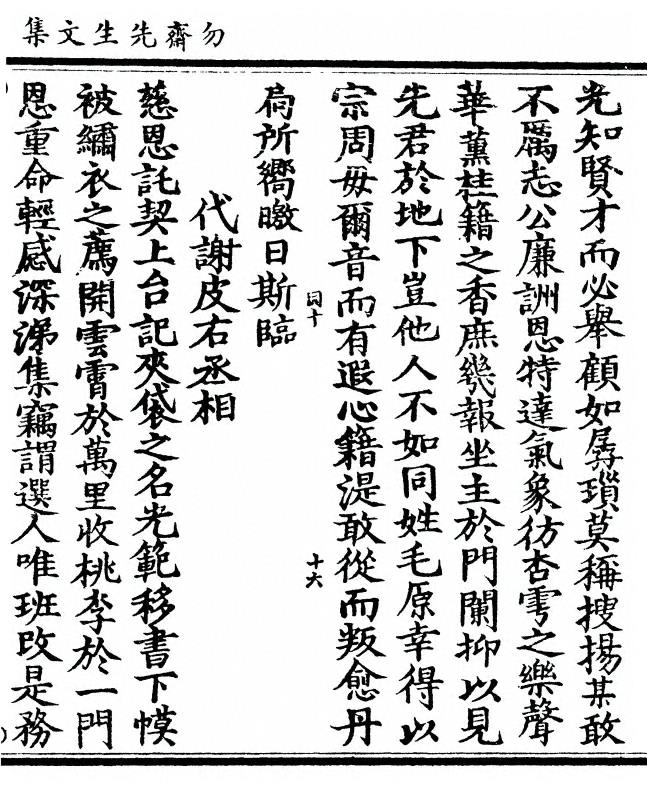 勿齋先生文集
光知賢才而必舉顧如孱瑣莫稱搜揚某敢
不厲志公廉詶恩特達氣象彷杏雩之樂聲
華薰桂籍之香庶幾報坐主於門闌抑以見
先君於地下豈他人不如同姓毛原幸得以
宗周毋爾音而有遐心籍湜敢從而叛愈丹
扃所嚮曒日斯臨
代謝皮右丞相
慈恩託契上台記夾袋之名光範移書下幙
被繡衣之薦開雲霄於萬里收桃李於一門
恩重命輕感深涕集竊謂選人唯班改是務
同十
十六